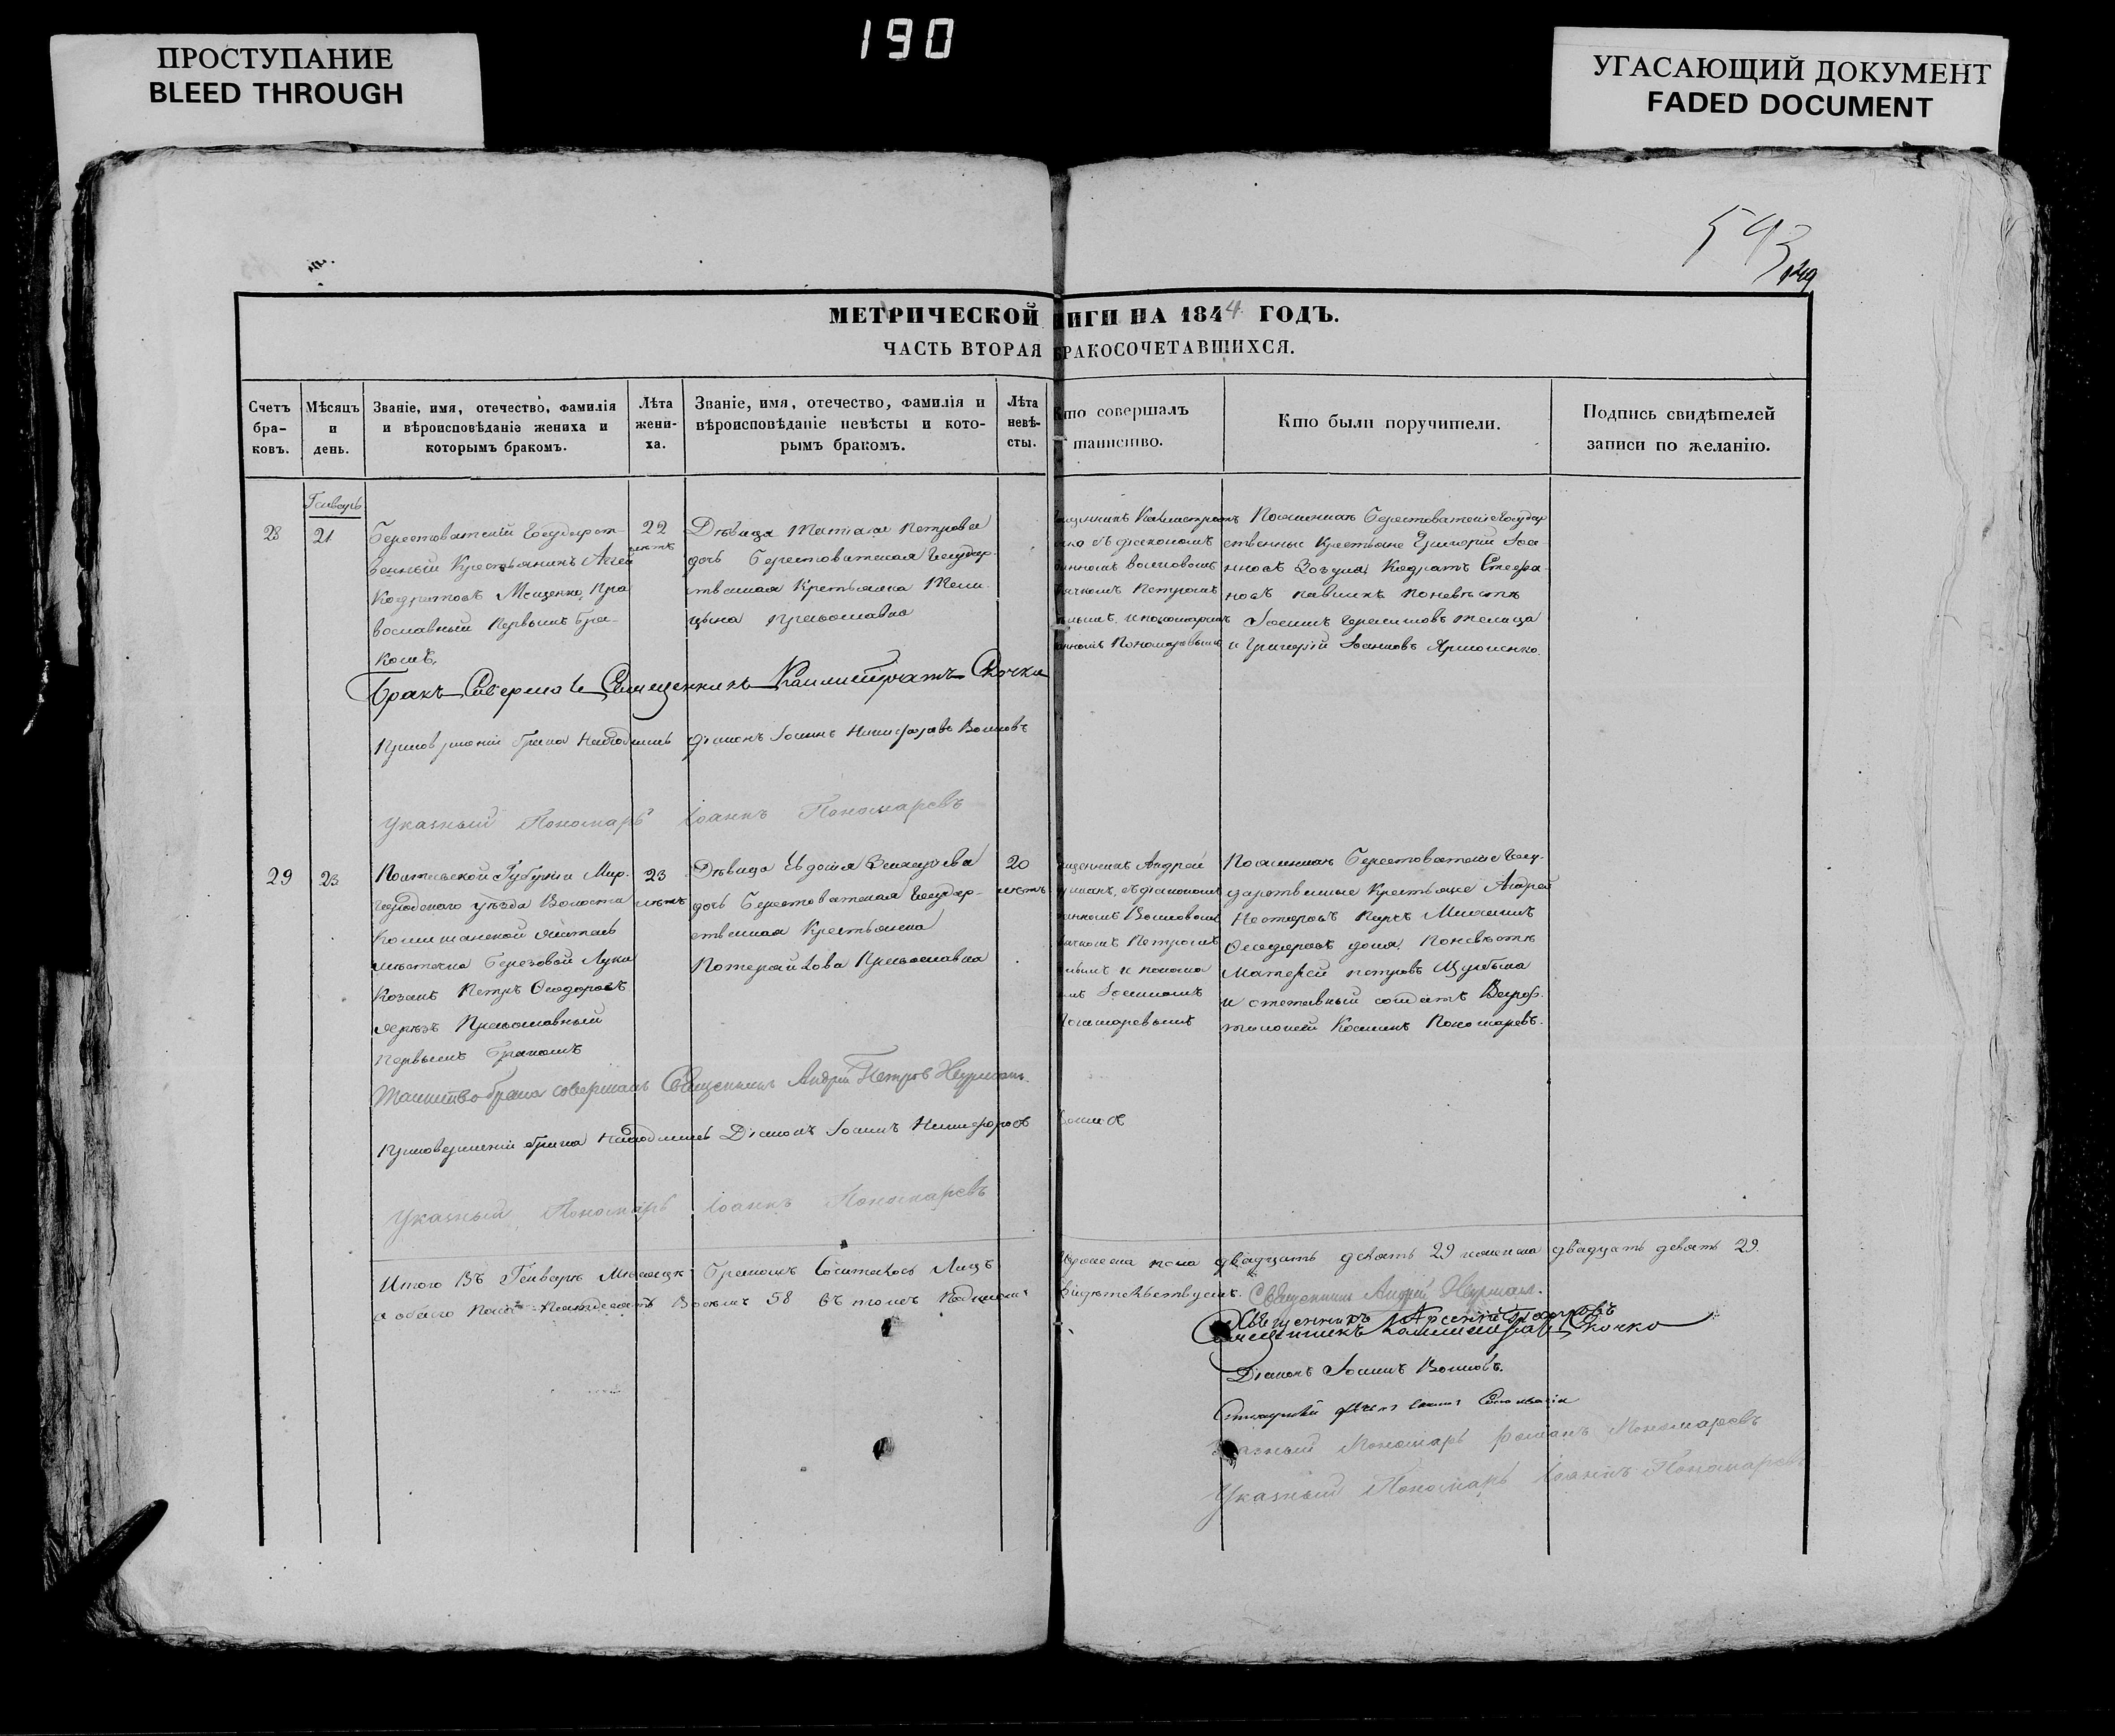 ПРОСТУПАНИЕ
BLEED THROUGH
190
УГАСАЮЩИЙ ДОКУМЕНТ
FADED DOCUMENT
593
МЕТРИЧЕСКОЙ НИГИ НА 1844 ГОДЪ.
ЧАСТЬ ВТОРАЯ БРАКОСОЧЕТАВШИХСЯ.
Счетъ бра-ковъ.
Мѣсяцъ и день.
Званіе, имя, отечество, фамилія и вѣроисповѣданіе жениха и которымъ бракомъ.
Лѣта жени-ха.
Званіе, имя, отечество, фамилія и вѣроисповѣданіе невѣсты и кото-рымъ бракомъ.
Лѣта невѣ-сты.
Кто совершалъ таинство.
Кто были поручители.
Подпись свидѣтелей записи по желанію.
Генварь
28
21
Берестоватскій Государст-
венный Крестьянинъ
Кодратовъ Мищенко Пра
вославный Первымъ бра-
комъ,
22
лѣтъ
Дѣвица Татіана Петрова
дочь Берестоватская Государ-
ственная Крестьянка Тели-
цына Православна
щенникъ Калистратъ
Скочко съ діакономъ
Іоанномъ Воиновомъ
Дячкомъ Петромъ
и пономаремъ
Іоанномъ Пономаревымъ
По женихѣ Берестоватскіе Государ
ственные Крестьяне Григорій Іоа-
нновъ Зозуля, Кодратъ Стефа-
новъ Павликъ По невѣстѣ
Іоаннъ Герасимовъ Телица
и Григорій Іоанновъ Ярмоленко.
Бракъ Совершалъ Священникъ Калистратъ Скочко
При совершеніи брака Находился діаконъ Іоаннъ Никифоровъ Воиновъ
Указный Пономарь Іоаннъ Пономаревъ
29
23
Полтавской Губерніи Мир-
городского уѣзда Волости
Комишанской житель
мѣстечка Березовой Луки
Козакъ Петръ Ѳеодоровъ
Православный
Первымъ бракомъ
23
лѣтъ
Дѣвица Евдокія Захаріева
дочь Берестоватская Государ-
ственная Крестьянка
Потерайлова Православна
20
лѣтъ
щенникъ Андрей
Нурманъ, съ діакономъ
Іоанномъ Воиновомъ
Дячкомъ Петромъ
и понома
Іоанномъ
Пономаревымъ
По женихѣ Берестоватскіе Госу-
дарственные Крестьяне Андрей
Нестеровъ Михаилъ
Ѳеодоровъ По невѣстѣ
Матфей Петровъ
и отставный солдатъ
Пономаревъ.
Таинство брака совершалъ Священникъ Андрей Петровъ Нурманъ.
При совершеніи брака Находился Діаконъ Іоаннъ Никифоровъ Воиновъ
Указный Пономарь Іоаннъ Пономаревъ
Итого Въ Генварѣ Мѣсяцѣ Бракомъ Сочиталось Лицъ пола двадцать девять 29 женска двадцать девять 29.
а обоего Пола Пятдесятъ Восемь 58 Въ томъ Подписомъ Свидѣтелствуемъ.
Священникъ Андрей Нурманъ.
Священникъ Арсеній
Священникъ Калистратъ Скочко
Діаконъ Іоаннъ Воиновъ.
Указный Пономарь Романъ Пономаревъ
Указный Пономарь Іоаннъ Пономаревъ